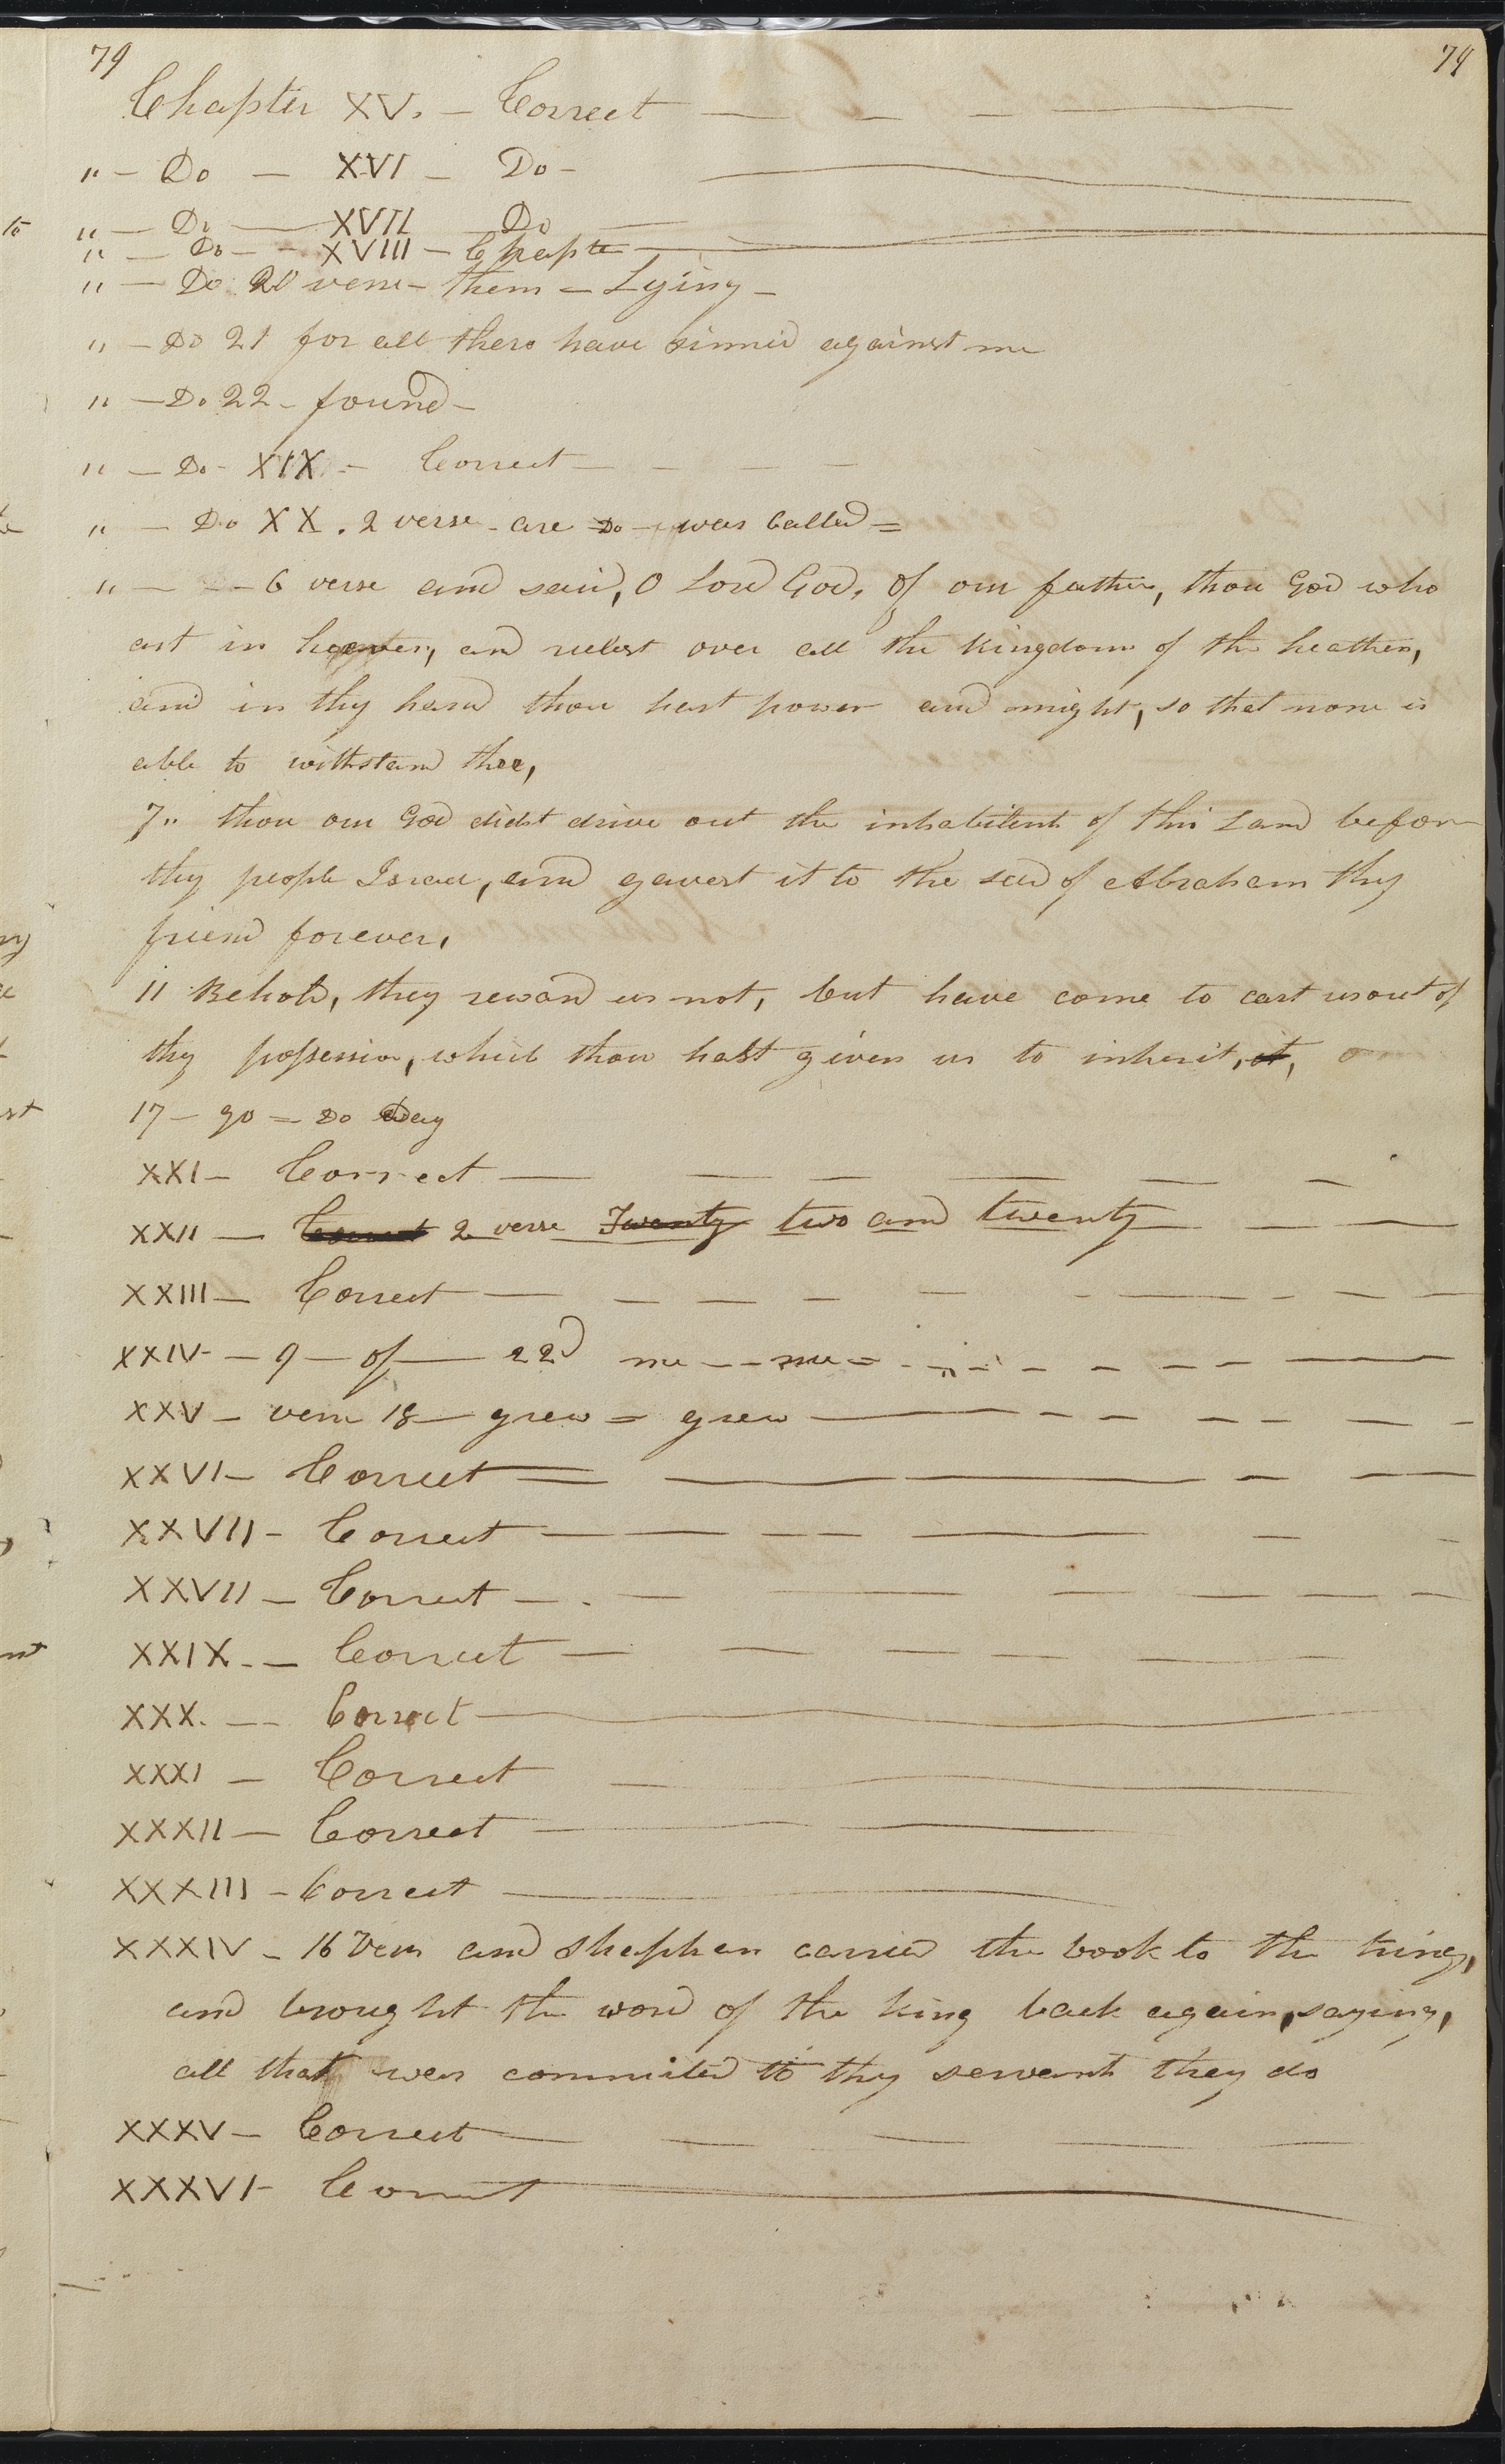 79 79
Chapter XV. – Correct — — — —
" – Do — XVI – Do – —
" — Do — XVII Do —
" — Do – – XVIII – Chapte —
" — Do 20 verse – them – Lying –
" – Do 21 for all these have sinned against me
" – Do 22 – found –
" – Do – XIX – Correct — — — —
" – Do XX. 2 verse – are Do – was Called =
" — – – 6 verse and said, O Lord God, of our father, thou God who
art in heaven, and rulest over all the kingdoms of the heathen,
and in thy hand thou hast power and might, so that none is
able to withstand thee,
7" thou our God didst drive out the inhabitent of this Land before
thy people Israel, and gavest it to the seed of Abraham thy
friend forever,
11 Behold, they reward us not, but have come to cast us out of
thy possession, which thou hast given us to inherit, it,
17 – go = Do Day
XXI – Correct — — — — — —
XXII — Correct 2 verse Twenty two and twenty — —
XXIII — Correct — — — — — — — — —
XXIV – 9 — of — 22d me – – me = – – – – – — —
XXV – verse 18 — grew = grew — – – – – — –
XXVI – Correct — — — — —
XXVII – Correct — — – – — — –
XXVII – Correct – . — — — — — –
XXIX. – Correct — — — — — —
XXX. — Correct —
XXXI – Correct — —
XXXII – Correct — —
XXXIII – Correct —
XXXIV – 16 Vers and Shaphan carried the book to the king,
and brought the word of the king back again, saying,
all that was commited to thy servants they do
XXXV – Correct — — — — —
XXXVI – Correct —